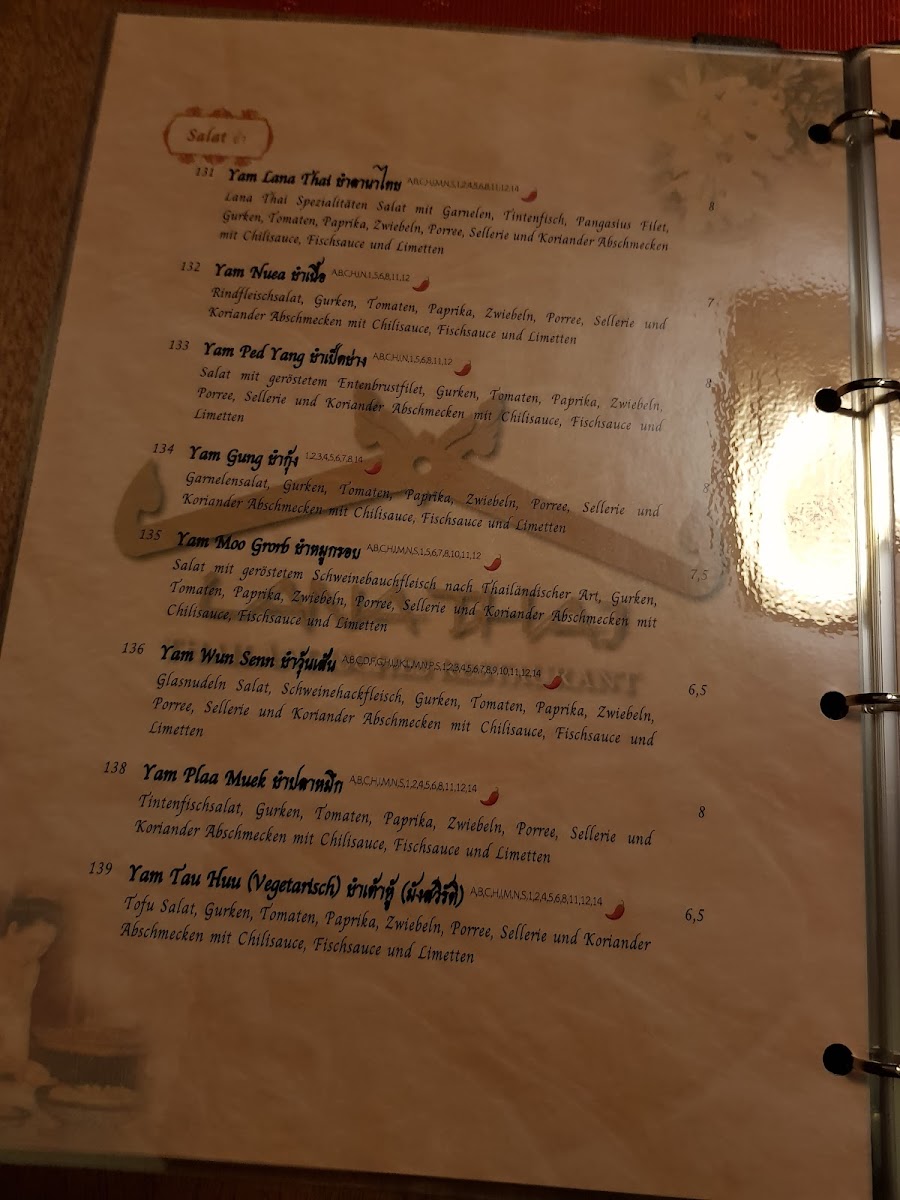 Salat ยำ
131 Yam Lana Thai ยำลานาไทย A,B,C,H,I,M,N,S,1,2,4,5,6,8,11,12,14
Lana Thai Spezialitäten Salat mit Garnelen, Tintenfisch, Pangasius Filet, 8
Gurken, Tomaten, Paprika, Zwiebeln, Porree, Sellerie und Koriander Abschmecken
mit Chilisauce, Fischsauce und Limetten
132 Yam Nuea ยำเนื้อ A,B,C,H,I,N,1,5,6,8,11,12
Rindfleischsalat, Gurken, Tomaten, Paprika, Zwiebeln, Porree, Sellerie und 7
Koriander Abschmecken mit Chilisauce, Fischsauce und Limetten
133 Yam Ped Yang ยำเป็ดย่าง A,B,C,H,I,N,1,5,6,8,11,12
Salat mit geröstetem Entenbrustfilet, Gurken, Tomaten, Paprika, Zwiebeln, 8
Porree, Sellerie und Koriander Abschmecken mit Chilisauce, Fischsauce und
Limetten
134 Yam Gung ยำกุ้ง 1,2,3,4,5,6,7,8,14
Garnelensalat, Gurken, Tomaten, Paprika, Zwiebeln, Porree, Sellerie und 8
Koriander Abschmecken mit Chilisauce, Fischsauce und Limetten
135 Yam Moo Grorb ยำหมูกรอบ A,B,C,H,I,M,N,S,1,5,6,7,8,10,11,12
Salat mit geröstetem Schweinebauchfleisch nach Thailändischer Art, Gurken, 7,5
Tomaten, Paprika, Zwiebeln, Porree, Sellerie und Koriander Abschmecken mit
Chilisauce, Fischsauce und Limetten
136 Yam Wun Senn ยำวุ้นเส้น A,B,C,D,F,G,H,I,J,K,L,M,N,P,S,1,2,3,4,5,6,7,8,9,10,11,12,14
Glasnudeln Salat, Schweinehackfleisch, Gurken, Tomaten, Paprika, Zwiebeln, 6,5
Porree, Sellerie und Koriander Abschmecken mit Chilisauce, Fischsauce und
Limetten
138 Yam Plaa Muek ยำปลาหมึก A,B,C,H,I,M,N,S,1,2,4,5,6,8,11,12,14
Tintenfischsalat, Gurken, Tomaten, Paprika, Zwiebeln, Porree, Sellerie und 8
Koriander Abschmecken mit Chilisauce, Fischsauce und Limetten
139 Yam Tau Huu (Vegetarisch) ยำเต้าหู้ (มังสวิรัติ) A,B,C,H,I,M,N,S,1,2,4,5,6,8,11,12,14
Tofu Salat, Gurken, Tomaten, Paprika, Zwiebeln, Porree, Sellerie und Koriander 6,5
Abschmecken mit Chilisauce, Fischsauce und Limetten